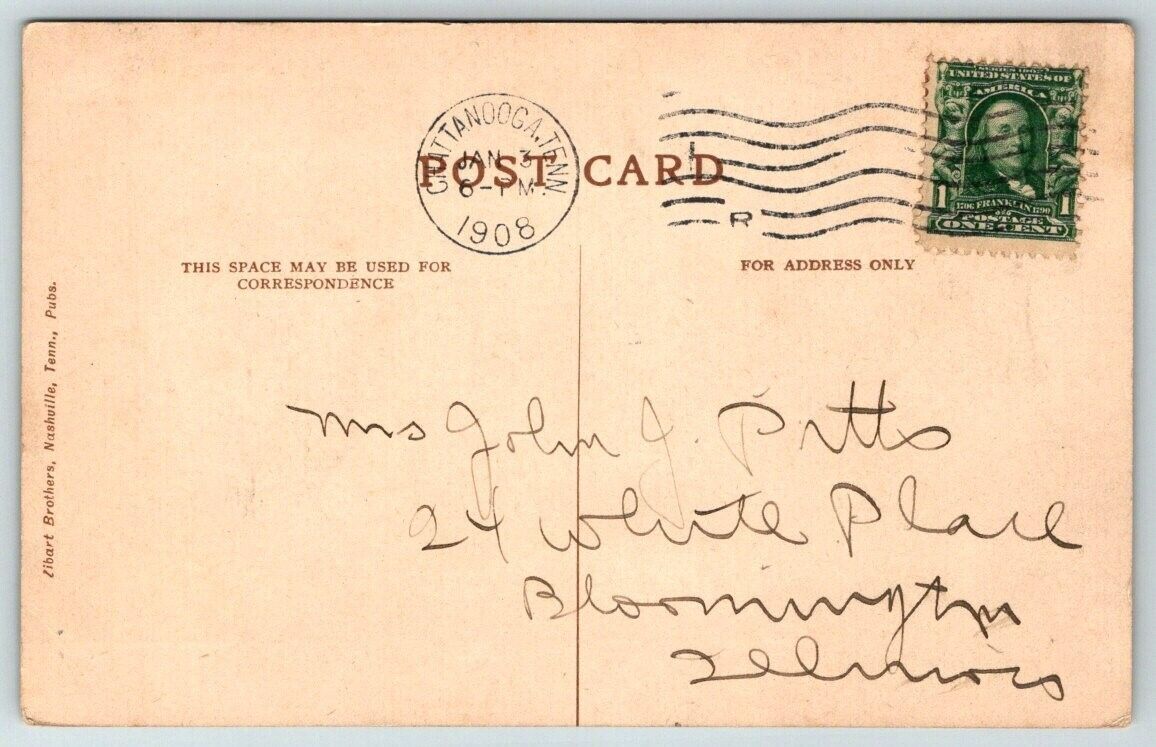 CHATTANOOGA, TENN
JAN 3
6-PM
1908
R
SERIES 1902
UNITED STATES OF
AMERICA
1 1
1706 FRANKLIN 1790
POSTAGE
ONE CENT
POST CARD
THIS SPACE MAY BE USED FOR
CORRESPONDENCE
FOR ADDRESS ONLY
Zibart Brothers, Nashville, Tenn., Pubs.
Mrs John J. Pitts
24 White Place
Bloomington
Illinois